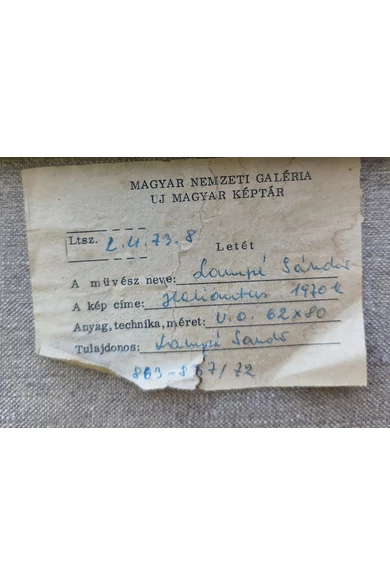 MAGYAR NEMZETI GALÉRIA
UJ MAGYAR KÉPTÁR
Ltsz. L.U.73.8
Letét
A művész neve: Lampé Sándor
A kép címe: Heliantus 1970 k
Anyag, technika, méret: V.O. 62x80
Tulajdonos: Lampé Sándor
863-867/72